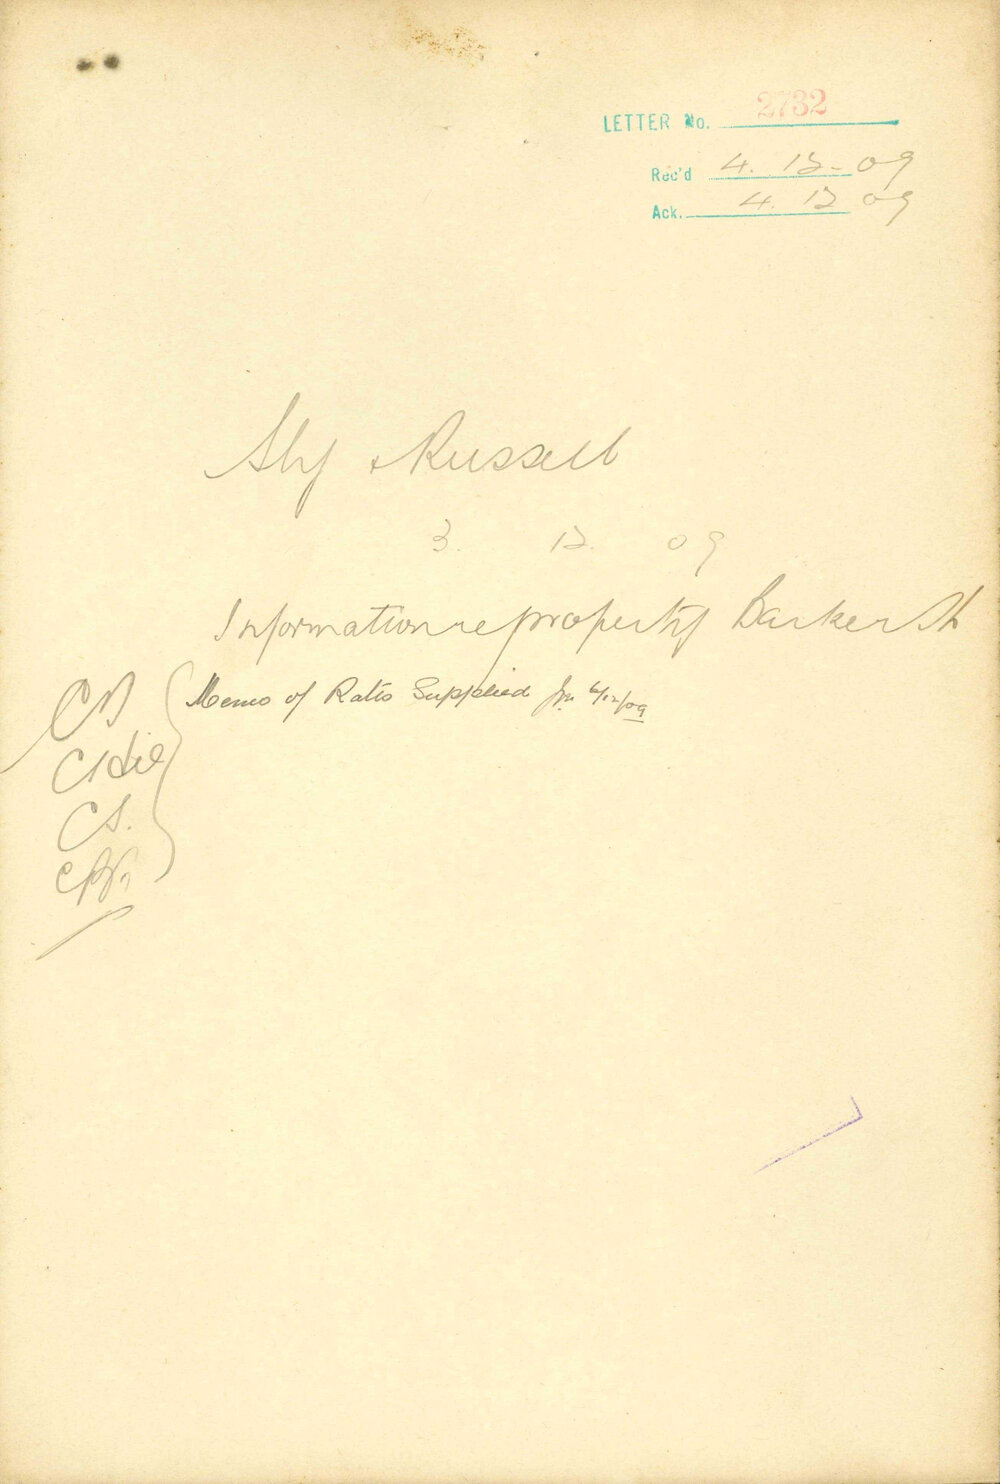 LETTER No. 2732
Rec'd 4. 12 - 09
Ack. 4. 12 09
Sly & Russell
3. 12. 09
Information re property Barker St
Memo of Rates Supplied 6/12/09
CS.